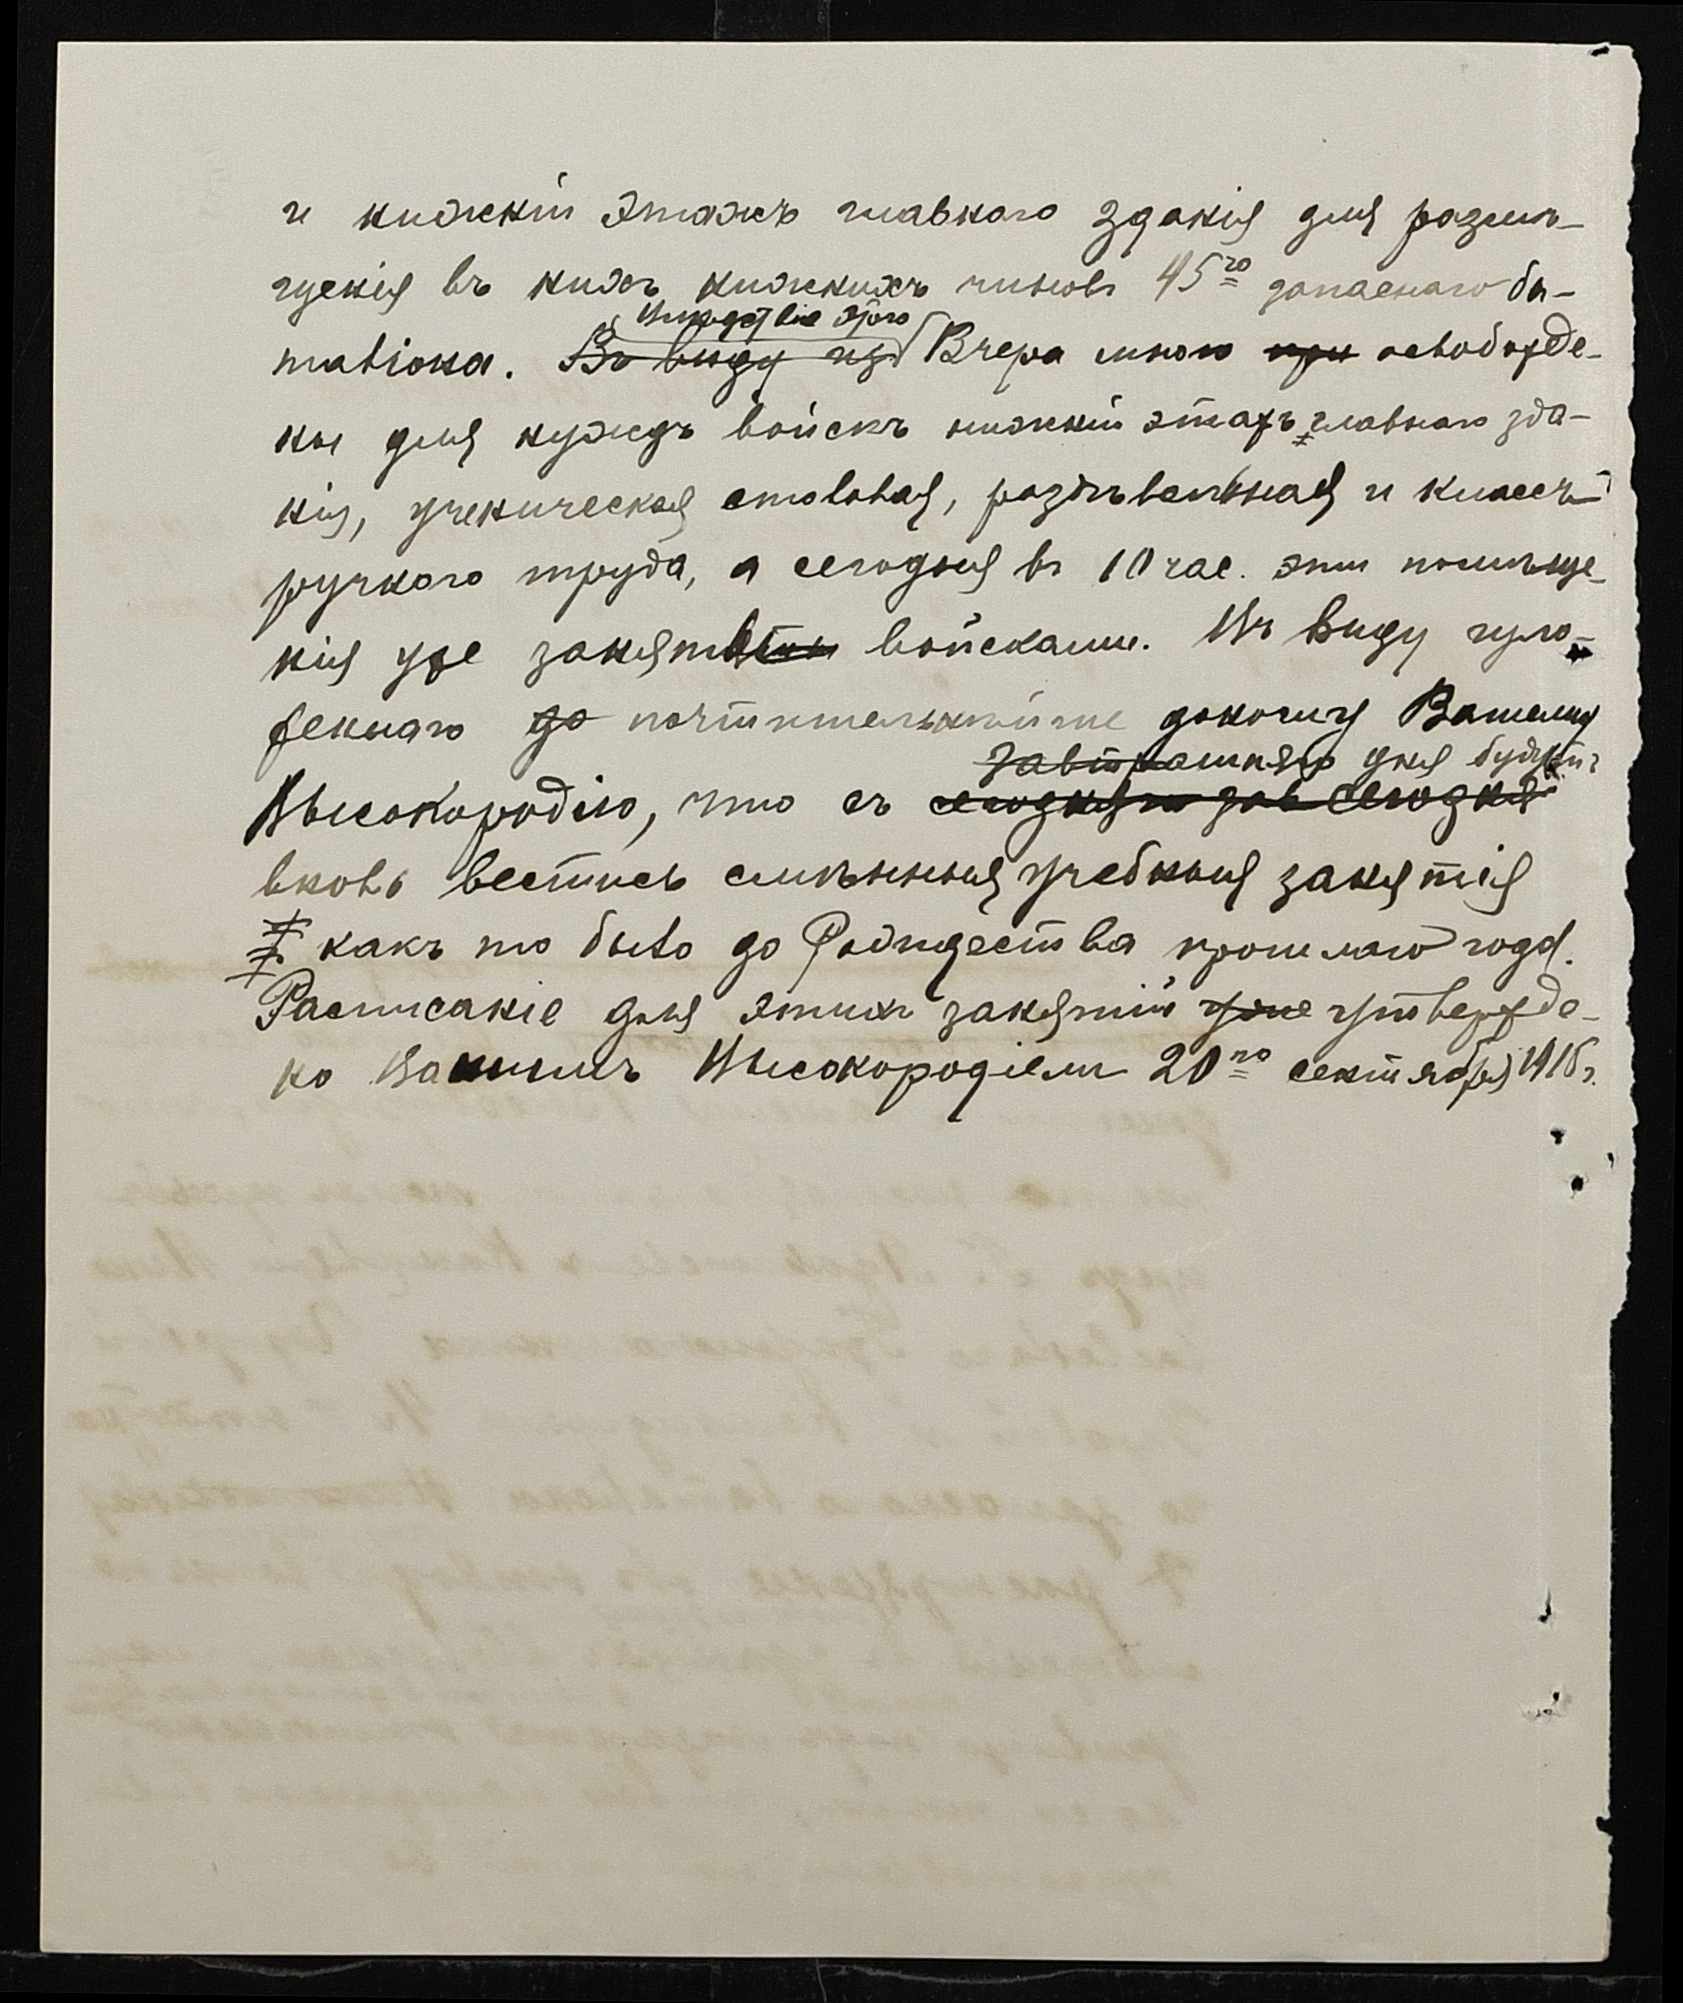 и нижній этажъ главного зданія для размѣ-
щенія въ нихъ нижнихъ чиновъ 45го запаснаго ба-
Вслѣдствіе этого
таліона. Въ виду из Вчера мною при освобожде-
ны для нуждъ войскъ нижній этажъ главнаго зда-
нія, ученическая столовая, раздѣвальная и классъ
ручного труда, а сегодня въ 10 час. эти помѣще-
нія уже заняты войсками. Въ виду изло-
женнаго до почтительнѣйше доношу Вашему
завтрашняго дня будутъ
Высокородію, что съ сегодня зав сегодня
вновь вестись смѣнныя учебныя занятія
какъ то было до Рождества прошлаго года.
Расписаніе для этихъ занятій уже утвержде-
но Вашимъ Высокородіемъ 20го сентября 1915г.